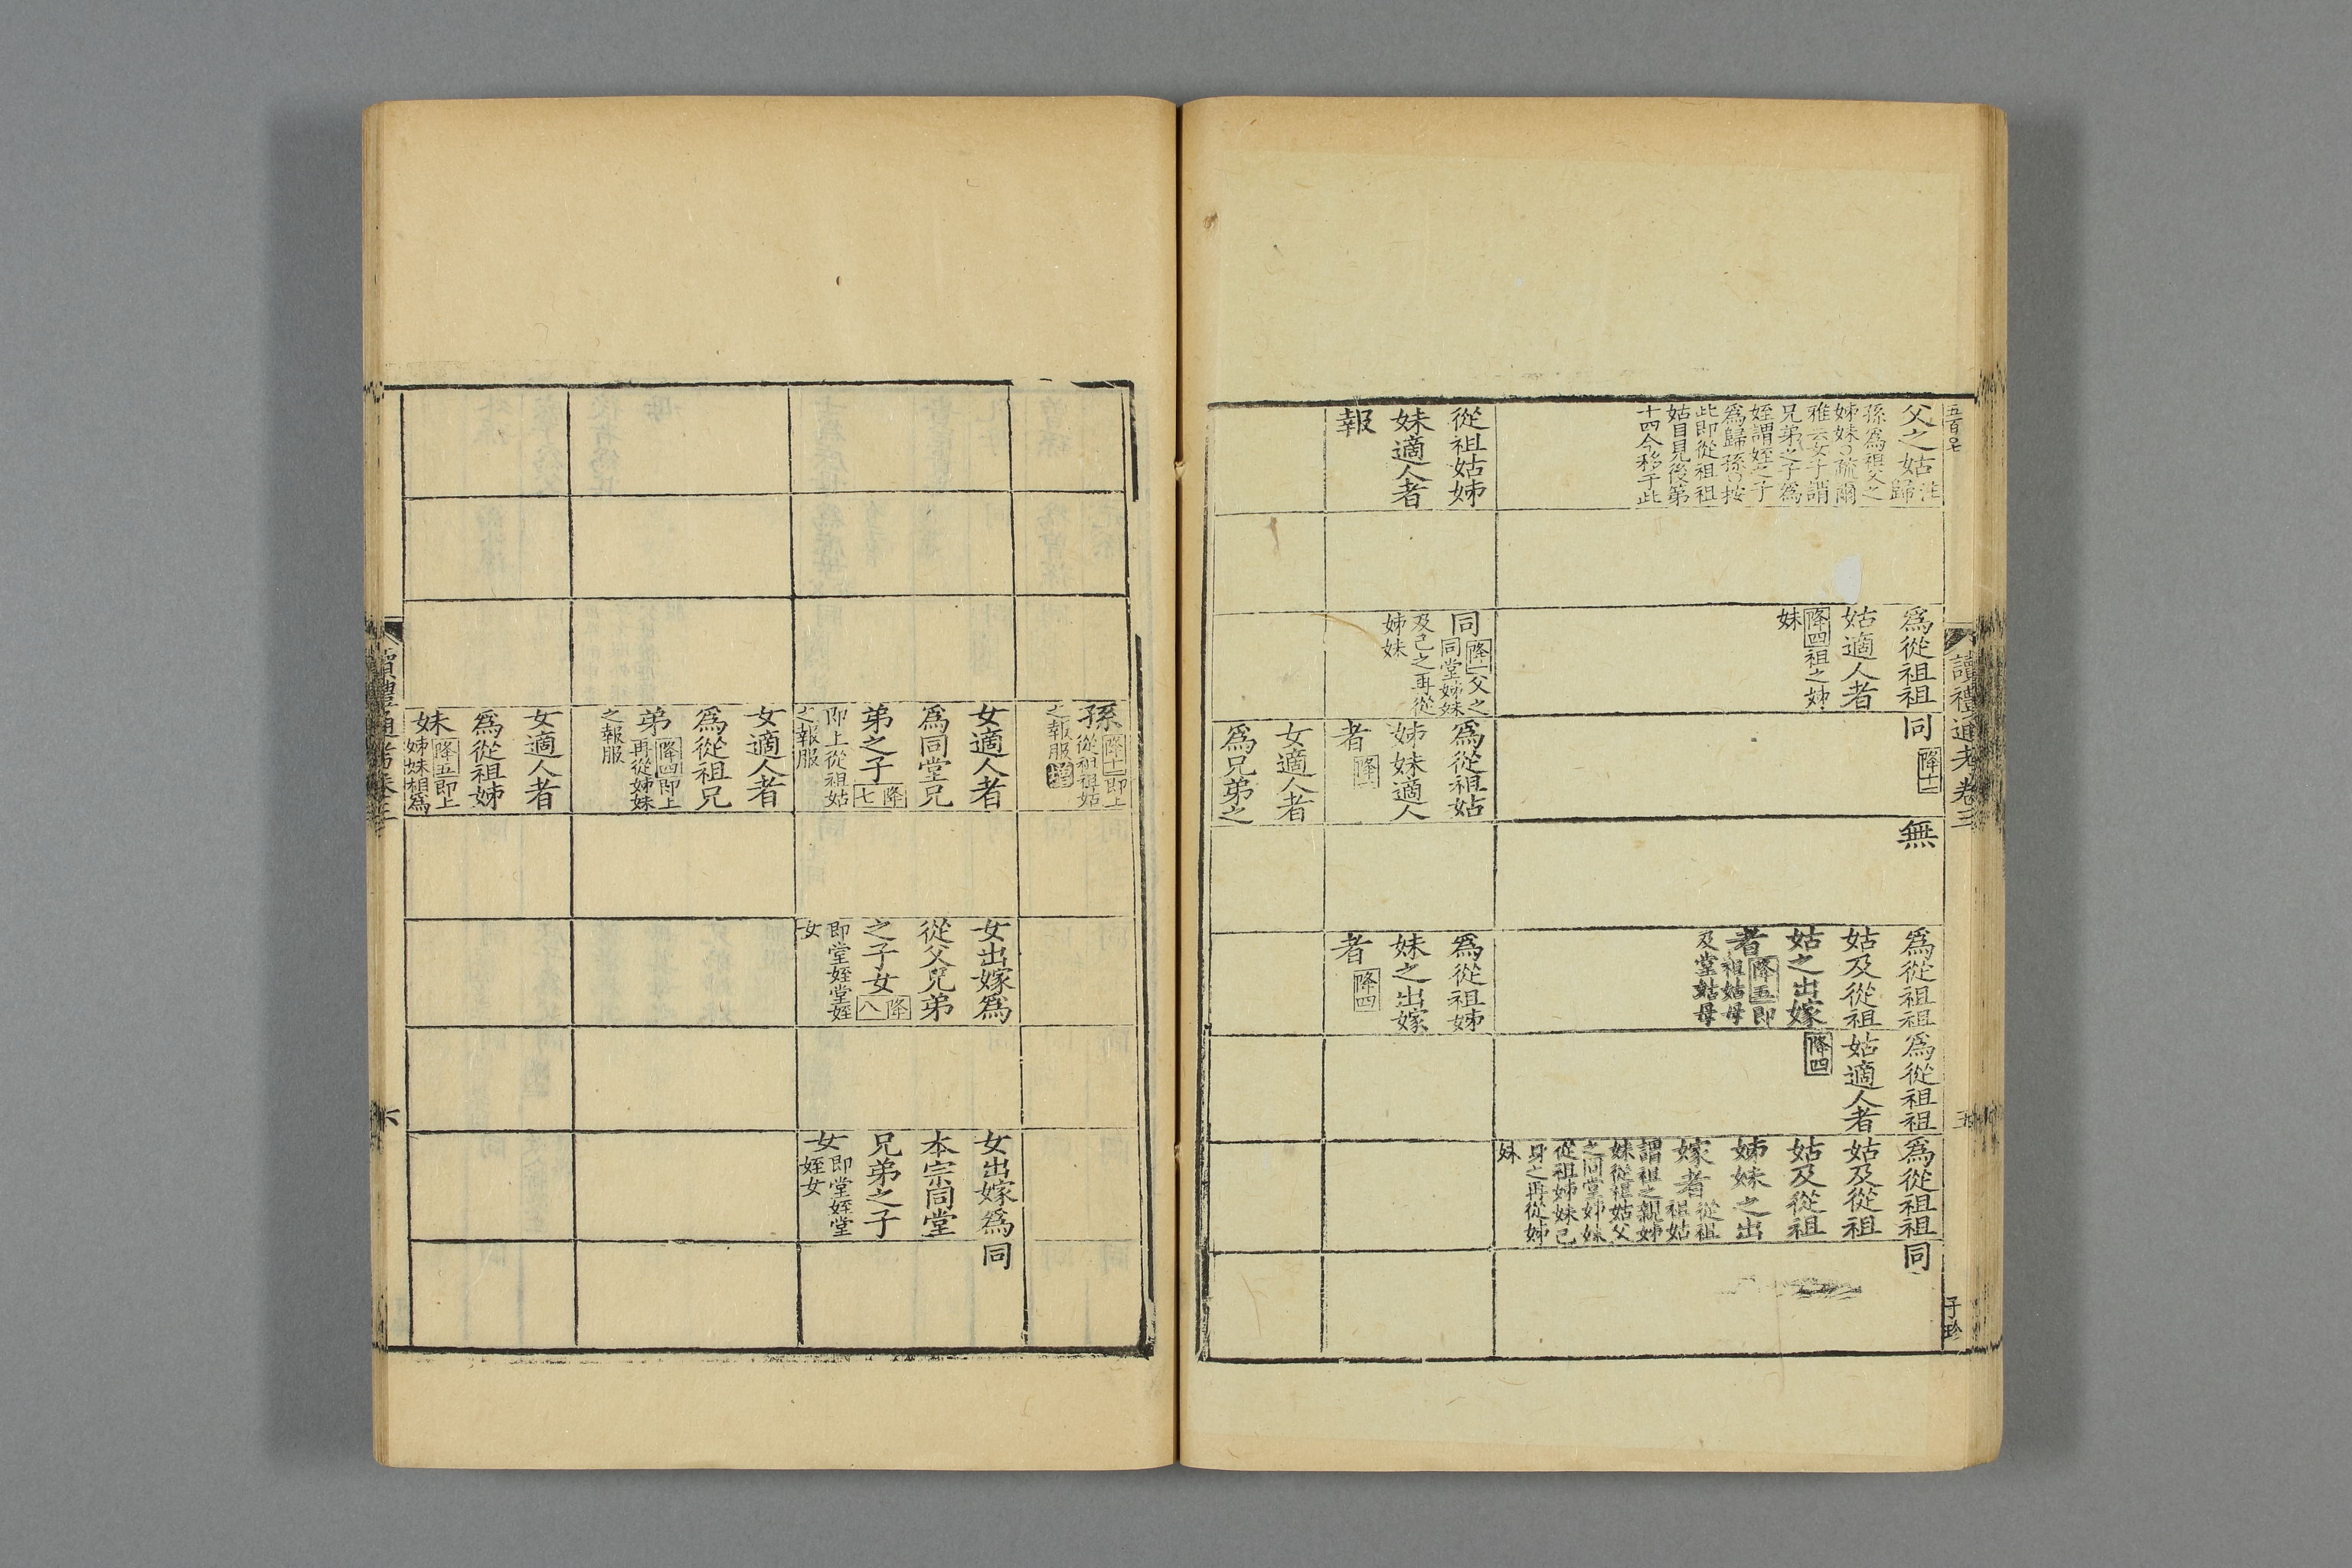 五百〇七
讀禮通考卷三
五
子珍
父之姑注歸
孫爲祖父之
姊妹〇疏爾
雅云女子謂
兄弟之子爲
姪謂姪之子
爲歸孫〇按
此即從祖祖
姑目見後第
十四今移于此
爲從祖祖
姑適人者
降四祖之姊
妹
同降十一
無
爲從祖祖
姑及從祖
姑之出嫁
者降五即
祖姑母
及堂姑母
爲從祖祖
姑適人者
降四
爲從祖祖
姑及從祖
姑及從祖
姊妹之出
嫁者從祖
祖姑
謂祖之親姊
妹從祖姑父
之同堂姊妹
從祖姊妹己
身之再從姊
妹
同
從祖姑姊
妹適人者
報
同降一父之
同堂姊妹
及己之再從
姊妹
爲從祖姑
姊妹適人
者降一
爲從祖姊
妹之出嫁
者降四
女適人者
爲兄弟之
孫降十一即上
從祖祖姑
之報服增
女適人者
爲同堂兄
弟之子降七
即上從祖姑
之報服
女出嫁爲
從父兄弟
之子女降八
即堂姪堂姪
女
女出嫁爲
本宗同堂
兄弟之子
女即堂姪堂
姪女
同
女適人者
爲從祖兄
弟降四即上
再從姊妹
之報服
女適人者
爲從祖姊
妹降五即上
姊妹相爲
讀禮通考卷三
六